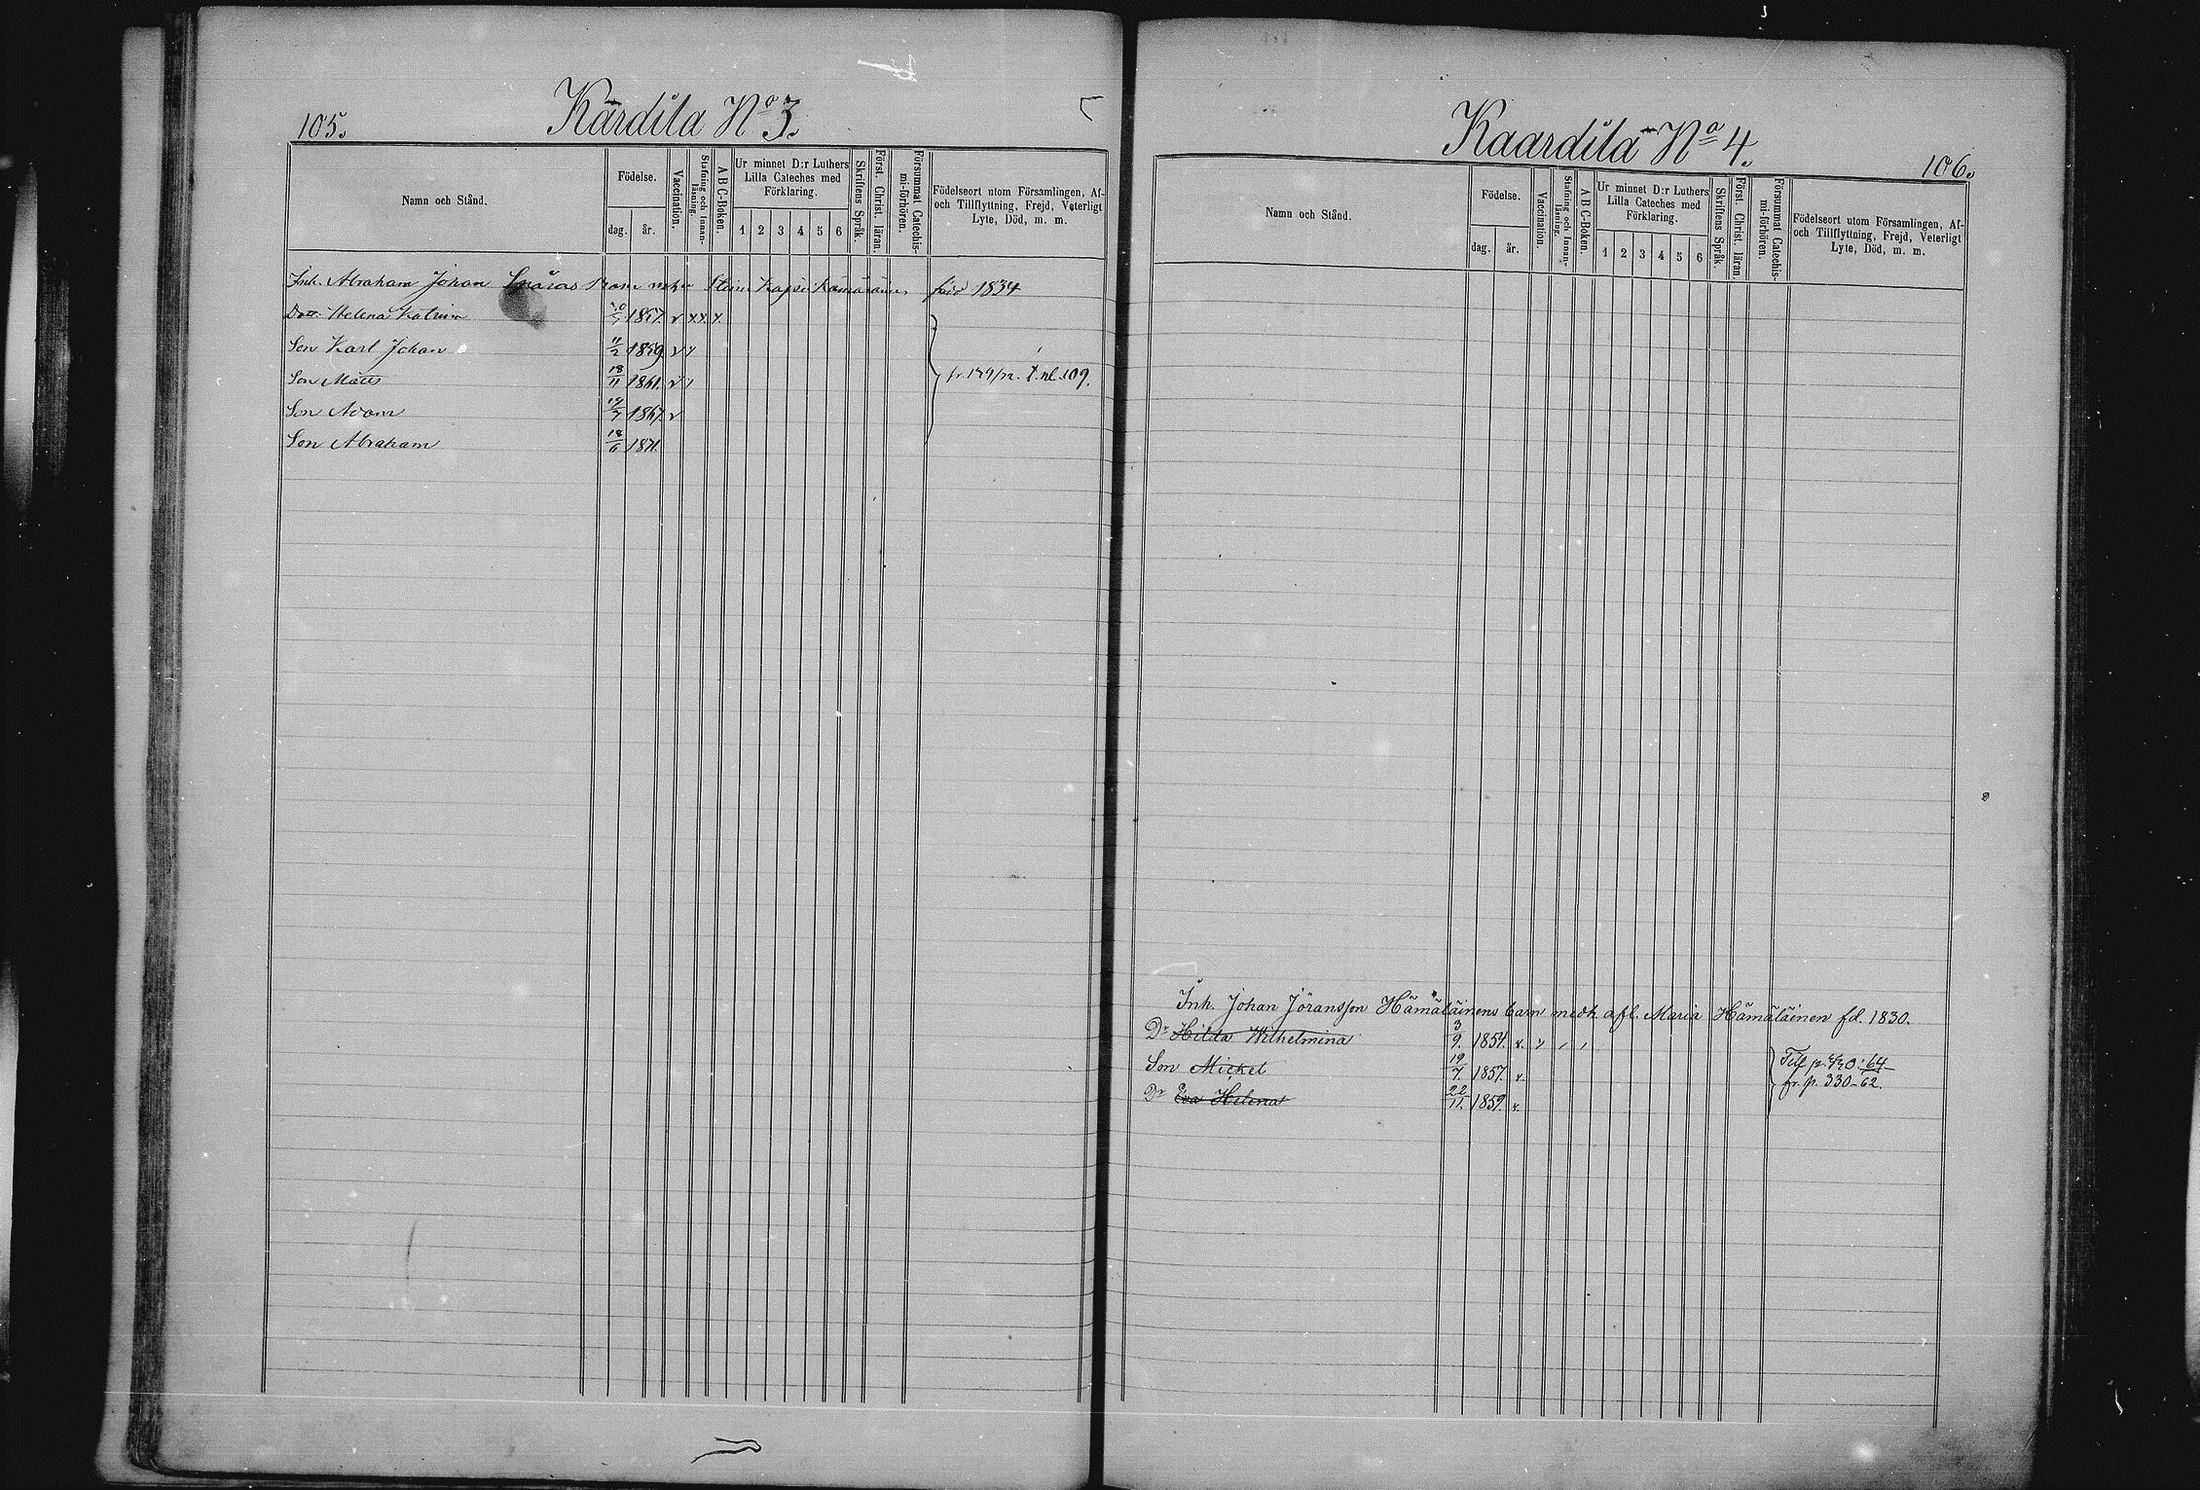 105.
Kärdila No 3.
Namn och Stånd.
Födelse.
dag.
år.
Vaccination.
Stafning och Innan-
läsning.
A B C-Boken.
Ur minnet D:r Luthers
Lilla Cateches med
Förklaring.
1 2 3 4 5 6
Skriftens Språk.
Först. Christ. läran.
Försummat Catechis-
mi-förhören.
Födelseort utom Församlingen, Af-
och Tillflyttning, Frejd, Veterligt
Lyte, Död, m. m.
Inh. Abraham Johan Barn född 1834
Dott. Helena Katrina 1857. v x x x
Son Karl Johan 11/2 1859. v
Son Matts 18/11 1861. v
Son Adam 1867. v
Son Abraham 18/6 1871.
109.
Kaardila No 4.
106.
Namn och Stånd.
Födelse.
dag.
år.
Vaccination.
Stafning och Innan-
läsning.
A B C-Boken.
Ur minnet D:r Luthers
Lilla Cateches med
Förklaring.
1 2 3 4 5 6
Skriftens Språk.
Först. Christ. läran.
Försummat Catechis-
mi-förhören.
Födelseort utom Församlingen, Af-
och Tillflyttning, Frejd, Veterligt
Lyte, Död, m. m.
Inh. Johan Jöransson Hämäläinens barn medh. afl. Maria Hämäläinen fd. 1830.
Dr Hilda Wilhelmina 3/9. 1854. v.
Son Mickel 19/7. 1857. v.
Dr Eva Helena 22/11. 1859. v.
64
fr. p. 330-62.